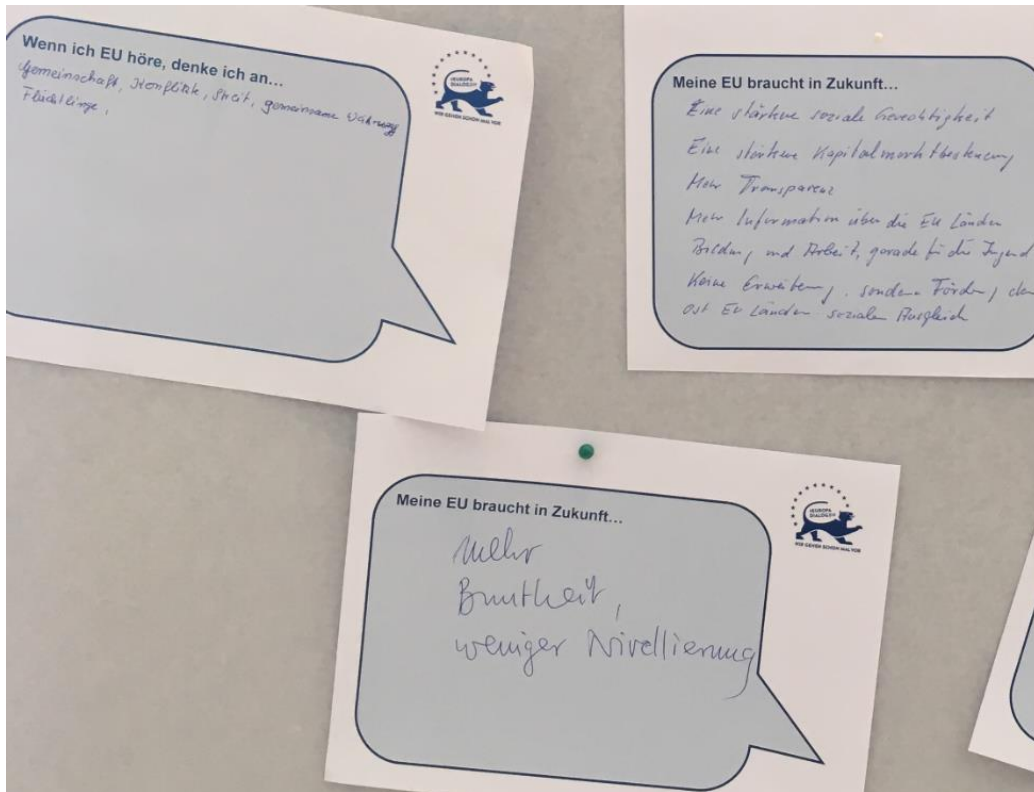 Wenn ich EU höre, denke ich an...
Gemeinschaft, Konflikte, Streit, gemeinsame Währung
Flüchtlinge,
EUROPA
DIALOG
WIR GEHEN SCHON MAL VOR
Meine EU braucht in Zukunft...
Eine stärkere soziale Gerechtigkeit
Eine stärkere Kapitalmarktbesteuerung
Mehr Transparenz
Mehr Information über die EU Länder
Bildung und Arbeit, gerade für die Jugend
Keine Erweiterung, sondern Förderung der
Ost EU Länder sozialen Ausgleich
Meine EU braucht in Zukunft...
mehr
Buntheit,
weniger Nivellierung
EUROPA
DIALOG
WIR GEHEN SCHON MAL VOR